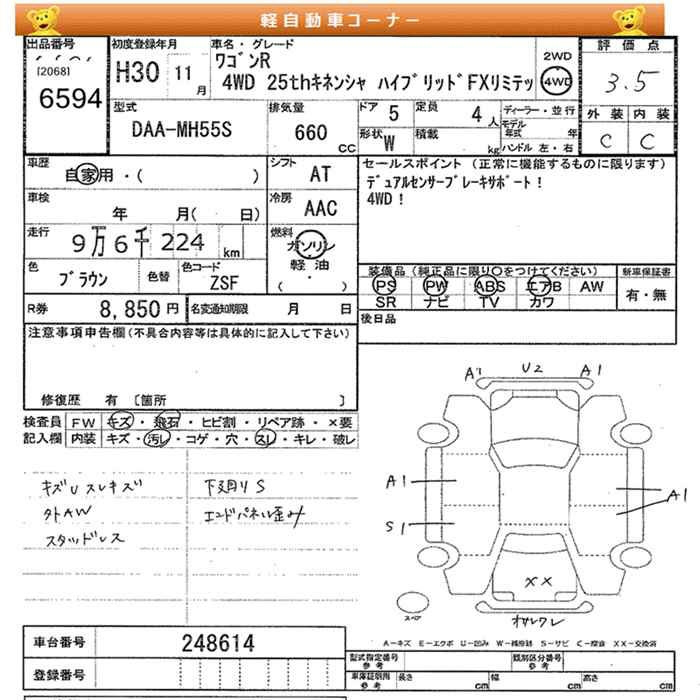 軽自動車コーナー
出品番号
[2068]
6594
初度登録年月
H30 11月
車名・グレード
ワゴンR
4WD 25thキネンシャ ハイブリッドFXリミテッ
2WD
4WD
評価点
3.5
外装 内装
C C
型式
DAA-MH55S
排気量
660 CC
ドア 5
定員 4人
形状 W
積載 kg
ディーラー・並行
モデル年式 年
ハンドル 左・右
車歴
自家用・( )
シフト AT
車検
年 月( 日)
冷房 AAC
走行
9万6千224 km
燃料
ガソリン
軽油
( ・ )
色
ブラウン
色替
色コード
ZSF
セールスポイント (正常に機能するものに限ります)
デュアルセンサーブレーキサポート!
4WD!
装備品(純正品に限り〇をつけてください)
PS PW ABS エアB AW
SR ナビ TV カワ
新車保証書
有・無
R券 8,850円
名変通知期限 月 日
後日品
注意事項申告欄(不具合内容等は具体的に記入して下さい)
修復歴 有 [箇所 ]
検査員記入欄
FW キズ・飛石・ヒビ割・リペア跡・×要
内装 キズ・汚レ・コゲ・穴・スレ・キレ・破レ
キズUスレキズ
外AW
スタッドレス
下廻りS
エンドパネル歪み
A1 U2 A1
A1
A1
S1
XX
スペア
オサレクレ
A-キズ E-エクボ U-凹み W-補修跡 S-サビ C-腐食 XX-交換済
車台番号 248614
登録番号
型式指定番号 参考
類別区分番号 参考
車庫証明用 参考
長さ cm 幅 cm 高さ cm